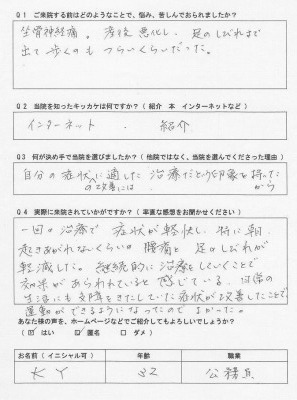 Q1 ご来院する前はどのようなことで、悩み、苦しんでおられましたか？
坐骨神経痛。症状悪化し、足のしびれまで
出て歩くのもつらいくらいだった。
Q2 当院を知ったキッカケは何ですか？（紹介 本 インターネットなど）
インターネット ． 紹介
Q3 何が決め手で当院を選びましたか？（他院ではなく、当院を選んでくださった理由）
自分の症状に適した治療だという印象を持った
の改善には から
Q4 実際に来院されていかがですか？（率直な感想をお聞かせください）
一回の治療で症状が軽快し、特に朝
起きあがれないくらいの腰痛と足のしびれが
軽減した。継続的に治療をしていくことで
効果があらわれていると感じている。
生活にも支障をきたしていた症状が改善したことで、
運動ができるようになったのでよかった。
あなた様の声を、ホームページなどでご紹介してもよろしいでしょうか？
（ ☑ はい ☑ 匿名 □ ダメ ）
お名前（イニシャル可） 年齢 職業
K Y 32 公務員